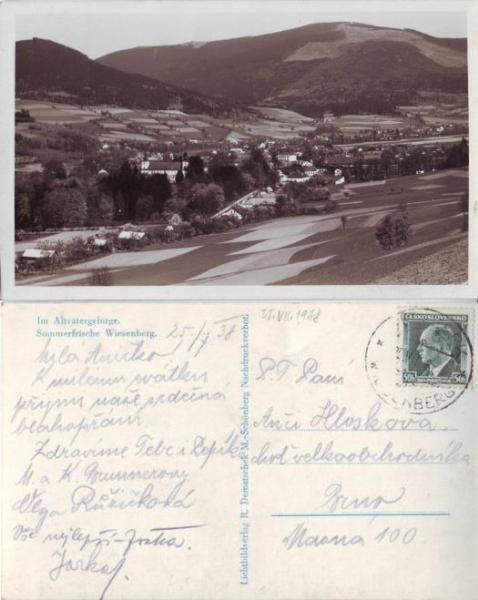 Im Altvatergebirge.
Sommerfrische Wiesenberg.
25./7 38
Milá Aničko,
K milému svátku
přijmi naše srdečná
blahopřání.
Zdravíme Tebe i Pepík
M. a K. Brunnerovy
Olga Růžičková
Vše nejlepší
Jarka
Lichtbildverlag R. Dematschek M.-Schönberg Nachdruckverbot.
25.VII.1938
ČESKOSLOVENSKO
50h 50h
P.T. Paní
Anči Hloskova
choť velkoobchodníka
Brno
Masná 100.